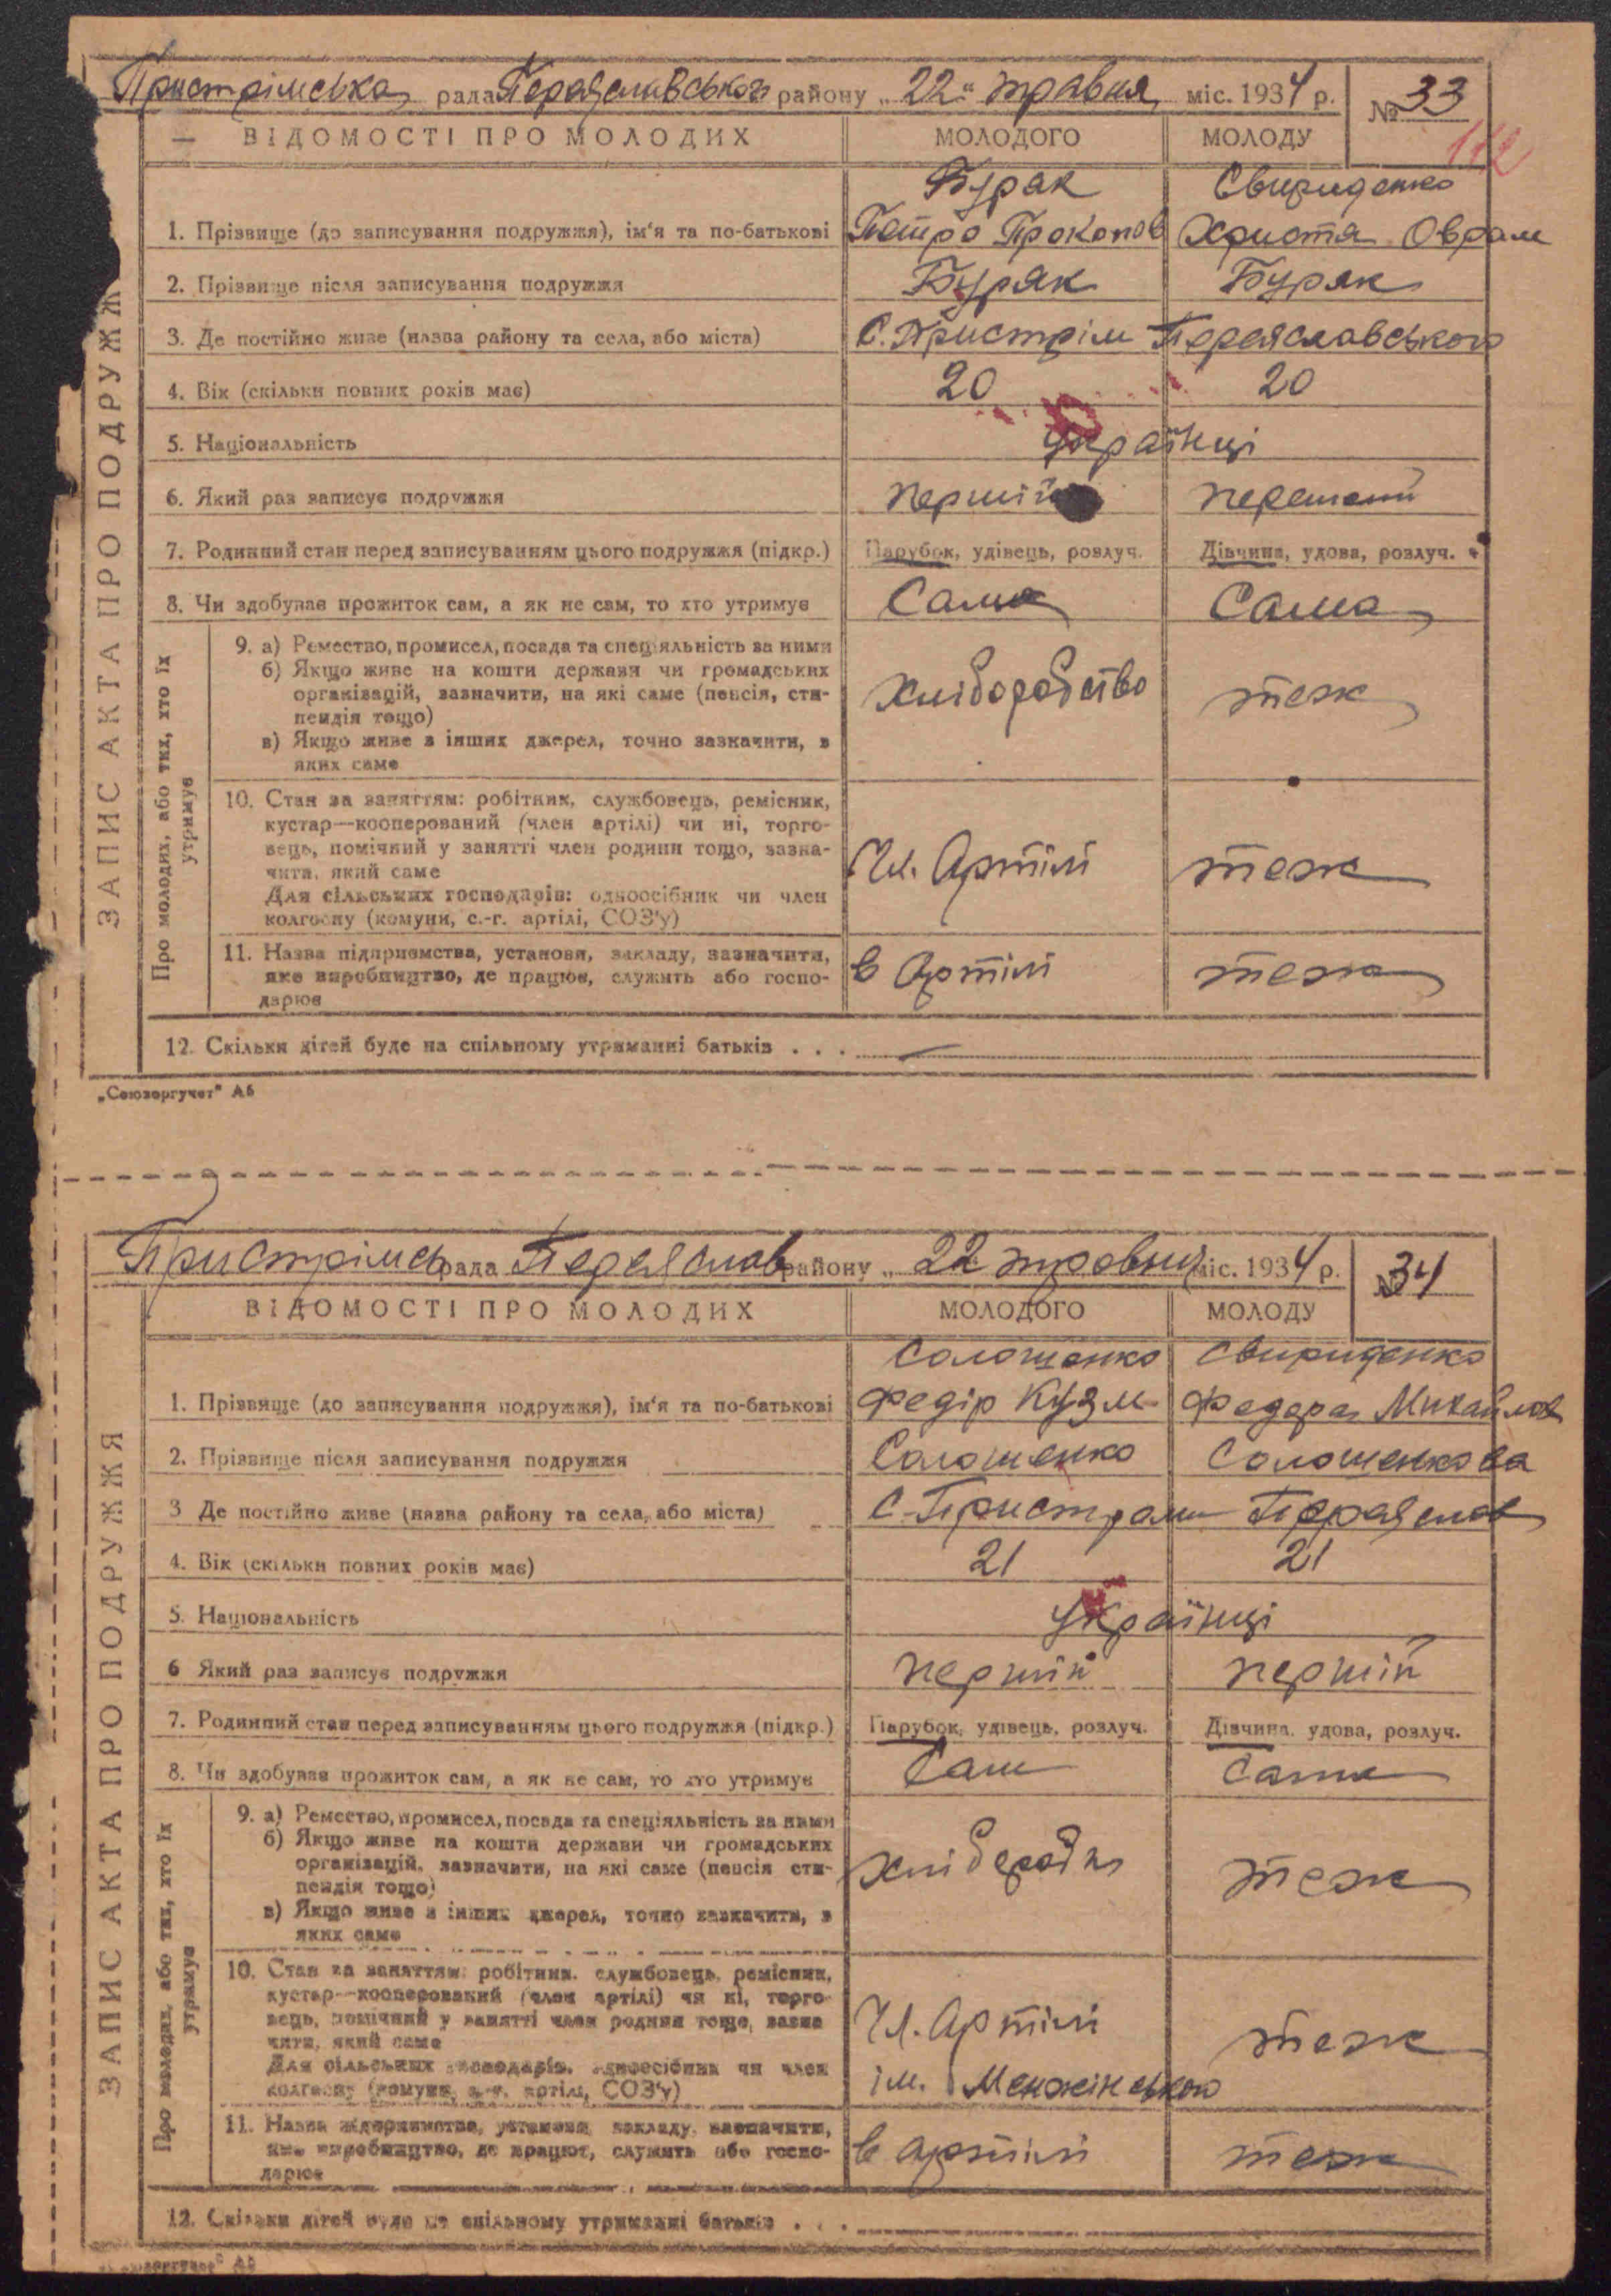 Пристрімська рада Переяславського району „22" травня міс. 1934 р. № 33
112
ЗАПИС АКТА ПРО ПОДРУЖЖ
ВІДОМОСТІ ПРО МОЛОДИХ МОЛОДОГО МОЛОДУ
Буряк Свириденко
1. Прізвище (до записування подружжя), ім'я та по-батькові Петро Прокопов Христя Оврам
2. Прізвище після записування подружжя Буряк Буряк
3. Де постійно живе (назва району та села, або міста) С. Пристрім Переяславського
4. Вік (скільки повних років має) 20 20
5. Національність Українці
6. Який раз записує подружжя перший
7. Родинний стан перед записуванням цього подружжя (підкр.) Парубок, удівець, розлуч. Дівчина, удова, розлуч.
8. Чи здобував прожиток сам, а як не сам, то хто утримує Сама
Про молодих, або тих, хто їх утримує
9. а) Ремество, промисел, посада та спеціяльність за ними
б) Якщо живе на кошти держави чи громадських
організацій, зазначити, на які саме (пенсія, сти-
пендія тощо) хліборобство теж
в) Якщо живе з інших джерел, точно зазначити, з
яких саме
10. Стан за заняттям: робітник, службовець, ремісник,
кустар—кооперований (член артілі) чи ні, торго-
вець, помічний у занятті член родини тощо, зазна-
чити, який саме Чл. Артілі теж
Для сільських господарів: одноосібник чи член
колгоспу (комуни, с.-г. артілі, СОЗ'у)
11. Назва підприємства, установи, закладу, зазначити,
яке виробництво, де працює, служить або госпо- в Артілі теж
дарює
12. Скільки дітей буде на спільному утриманні батьків . . . —
„Союзоргучет" А5
Пристрімсь рада Переяслав району „ 22 травня міс. 1934 р. № 34
ЗАПИС АКТА ПРО ПОДРУЖЖЯ
ВІДОМОСТІ ПРО МОЛОДИХ МОЛОДОГО МОЛОДУ
Солошенко Свириденко
1. Прізвище (до записування подружжя), ім'я та по-батькові Федір Кузм Федора Михайлов
2. Прізвище після записування подружжя Солошенко Солошенкова
3 Де постійно живе (назва району та села, або міста) С. Пристром Переяслов
4. Вік (скільки повних років має) 21 21
5. Національність Українці
6 Який раз записує подружжя першій першій
7. Родинний стан перед записуванням цього подружжя (підкр.) Парубок, удівець, розлуч. Дівчина, удова, розлуч.
8. Чи здобував прожиток сам, а як не сам, то хто утримує Сам Сама
Про молодих, або тих, хто їх утримує
9. а) Ремество, промисел, посада та спеціяльність за ними
б) Якщо живе на кошти держави чи громадських
організацій, зазначити, на які саме (пенсія сти- теж
пендія тощо)
в) Якщо живе з інших джерел, точно зазначити, з
яких саме
10. Стан за заняттям: робітник, службовець, ремісник,
кустар—кооперований (член артілі) чи ні, торго-
вець, помічний у занятті член родини тощо, зазна Чл. Артілі теж
чити, який саме
Для сільських господарів, одноосібник чи член ім. Менжінського
колгоспу (комуни, с.-г. артілі, СОЗ'у)
11. Назва підприємства, установи, закладу, зазначити,
яке виробництво, де працює, служить або госпо- в артілі теж
дарює
12. Скільки дітей буде на спільному утриманні батьків . . .